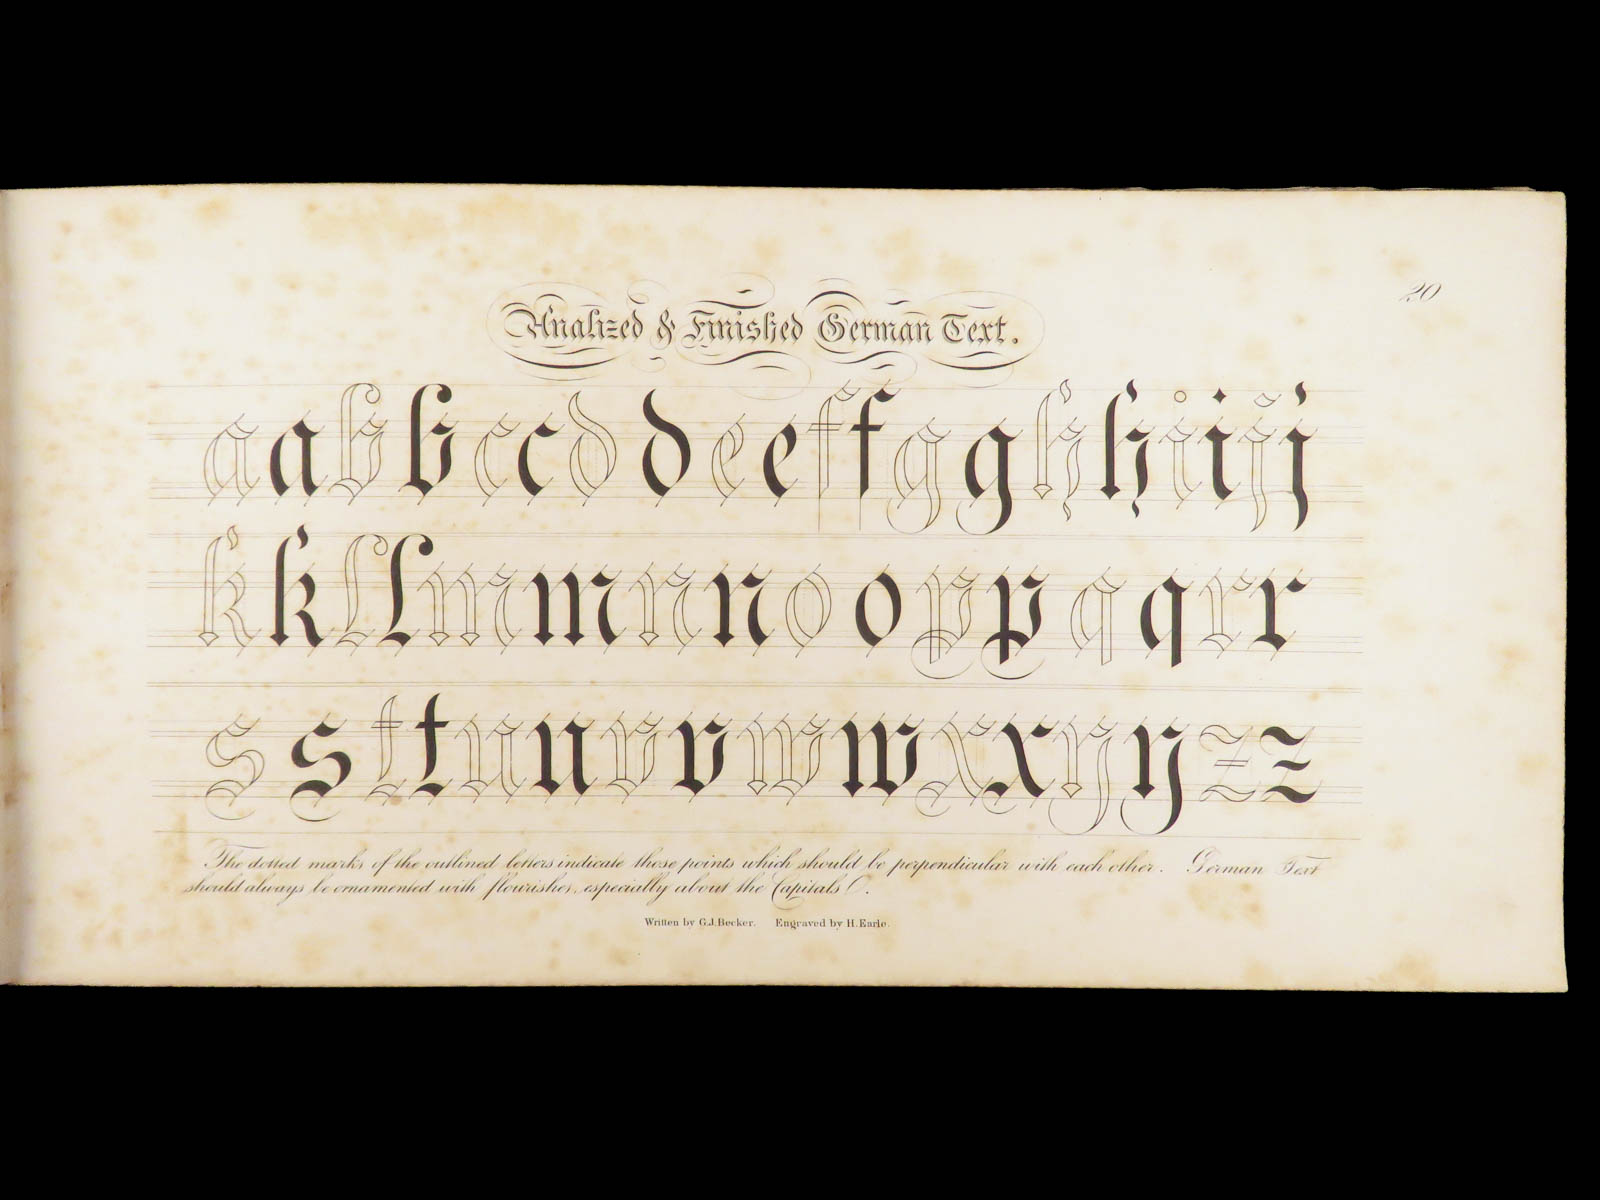 20
Analized & Finished German Text.
a a b b c c d d e e f f g g h h i i j j
k k l l m m n n o o p p q q r r
s s t t u u v v w w x x y y z z
The dotted marks of the outlined letters indicate those points which should be perpendicular with each other. German Text
should always be ornamented with flourishes, especially about the Capitals.
Written by G.J. Becker. Engraved by H. Earle.